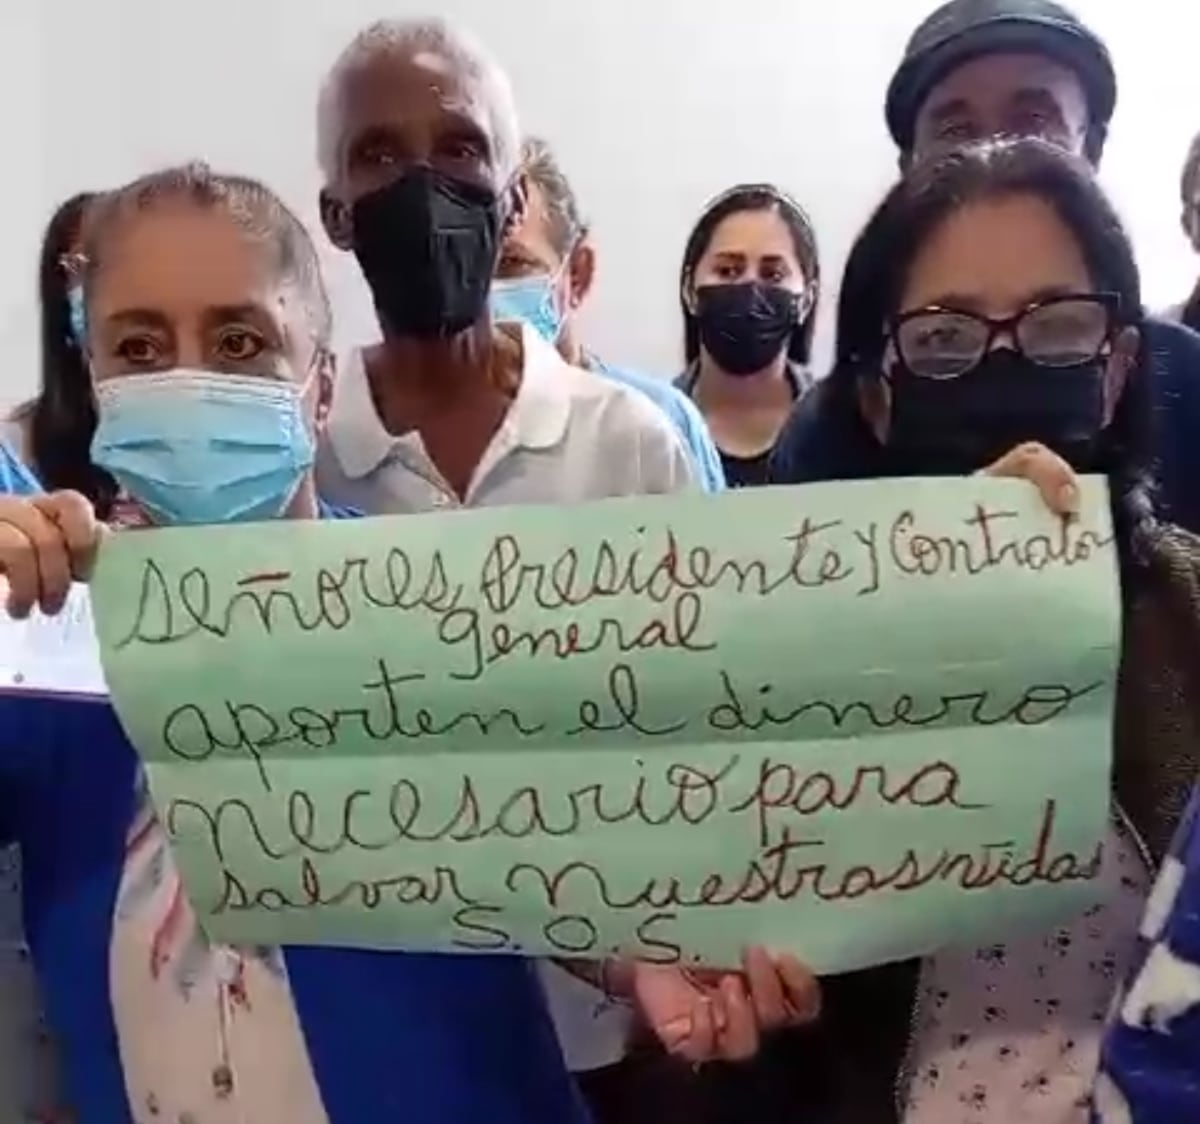 Señores, Presidente y Contralor
general
aporten el dinero
necesario para
salvar nuestras vidas
S.O.S.